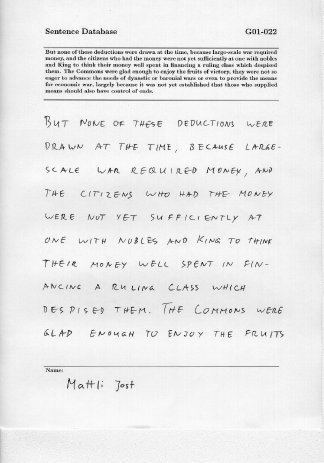 Sentence Database G01-022
But none of these deductions were drawn at the time, because large-scale war required
money, and the citizens who had the money were not yet sufficiently at one with nobles
and King to think their money well spent in financing a ruling class which despised
them. The Commons were glad enough to enjoy the fruits of victory, they were not so
eager to advance the needs of dynastic or baronial wars or even to provide the means
for economic war, largely because it was not yet established that those who supplied
means should also have control of ends.
BUT NONE OF THESE DEDUCTIONS WERE
DRAWN AT THE TIME, BECAUSE LARGE-
SCALE WAR REQUIRED MONEY, AND
THE CITIZENS WHO HAD THE MONEY
WERE NOT YET SUFFICIENTLY AT
ONE WITH NOBLES AND KING TO THINK
THEIR MONEY WELL SPENT IN FIN-
ANCING A RULING CLASS WHICH
DESPISED THEM. THE COMMONS WERE
GLAD ENOUGH TO ENJOY THE FRUITS
Name:
Mattli Jost